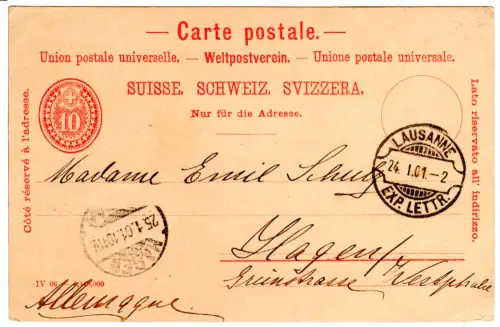 — Carte postale. —
Union postale universelle. — Weltpostverein. — Unione postale universale.
SUISSE. SCHWEIZ. SVIZZERA.
Nur für die Adresse.
Côté réservé à l'adresse.
Lato riservato all' indirizzo.
10
LAUSANNE
24. I. 01. – 2
EXP. LETTR.
Madame Emil Schulz
HAGEN
25.1.01.
Hagen /
Grünstrasse Westphalie
Allemagne
IV 06